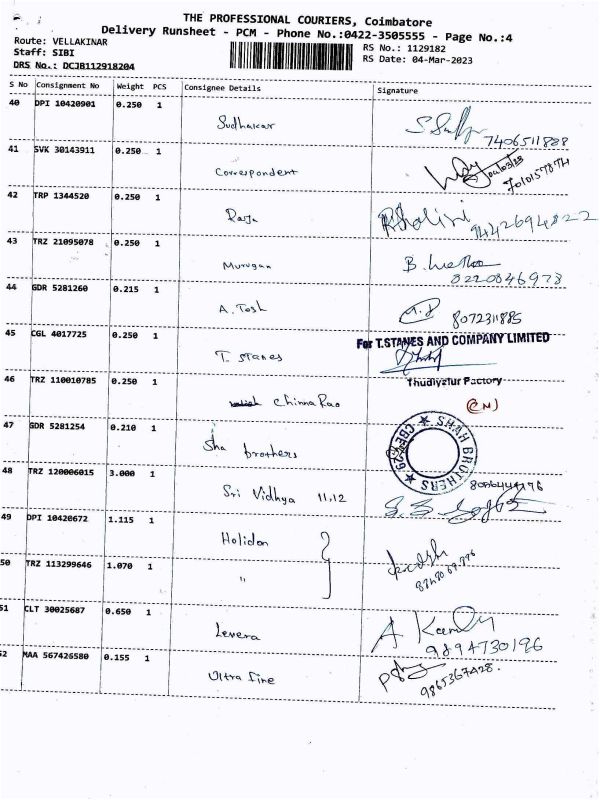 THE PROFESSIONAL COURIERS, Coimbatore
Delivery Runsheet - PCM - Phone No.:0422-3505555 - Page No.:4
Route: VELLAKINAR
RS No.: 1129182
Staff: SIBI
RS Date: 04-Mar-2023
DRS No.: DCJB112918204
S No Consignment No Weight PCS Consignee Details Signature
40 DPI 10420901 0.250 1
Sudhakar 7406511888
41 SVK 30143911 0.250 1
Correspondent 04/03/23
7010157874
42 TRP 1344520 0.250 1
Raja 9442694822
43 TRZ 21095078 0.250 1
Murugan
8220846978
44 GDR 5281260 0.215 1
A. Tosh 8072311885
45 CGL 4017725 0.250 1 For T.STANES AND COMPANY LIMITED
T. STANES
Thudiyalur Factory
46 TRZ 110010785 0.250 1
Chinna Rao
47 GDR 5281254 0.210 1
Sha brothers SHAH BROTHERS
48 TRZ 120006015 3.000 1
Sri Vidhya 11,12
49 DPI 10420672 1.115 1
Holidon
50 TRZ 113299646 1.070 1
"
51 CLT 30025687 0.650 1
Levera
9894730196
52 MAA 567426580 0.155 1
Ultra fine 9865367428.